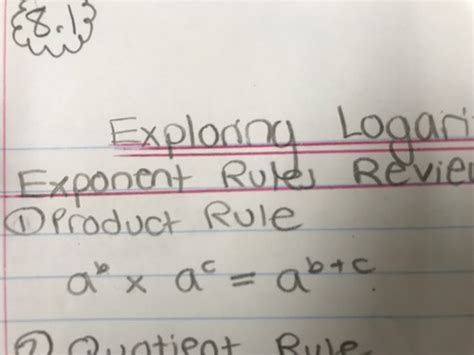 8.1
Exploring Logari
Exponent Rules Revie
① Product Rule
aᵇ × aᶜ = aᵇ⁺ᶜ
② Quotient Rule